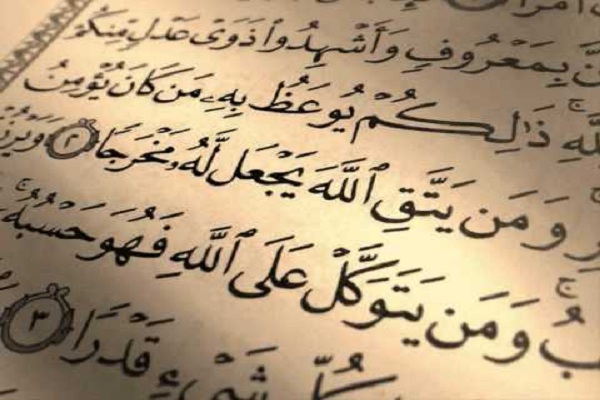 أَمْرًا
بِمَعْرُوفٍ وَأَشْهِدُوا۟ ذَوَىْ عَدْلٍ مِّنكُمْ
ذَٰلِكُمْ يُوعَظُ بِهِۦ مَن كَانَ يُؤْمِنُ
وَمَن يَتَّقِ ٱللَّهَ يَجْعَل لَّهُۥ مَخْرَجًا ٢
وَمَن يَتَوَكَّلْ عَلَى ٱللَّهِ فَهُوَ حَسْبُهُۥٓ ۚ
شَىْءٍ قَدْرًا ٣